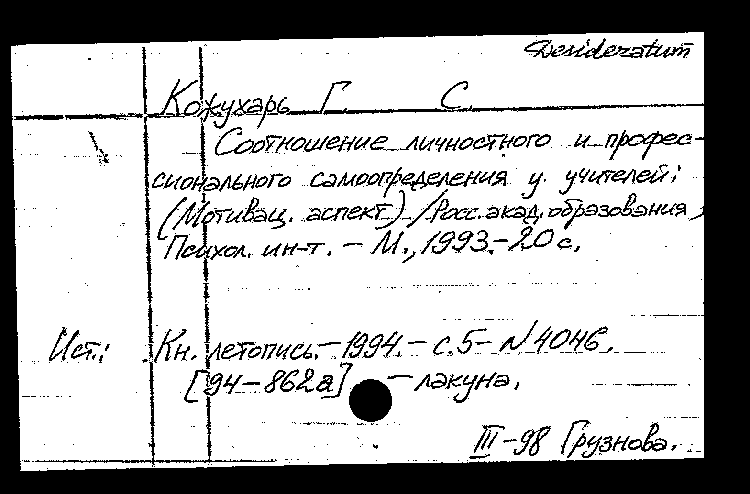 Desideratum
Кожухарь Г. С.
Соотношение личностного и профес-
сионального самоопределения у учителей:
(Мотивац. аспект) /Росс. акад. образования,
Психол. ин-т. – М., 1993.–20 с.
Ист.: Кн. летопись.–1994.–с.5–N4046.
[94–862а] – лакуна.
III–98 Грузнова.